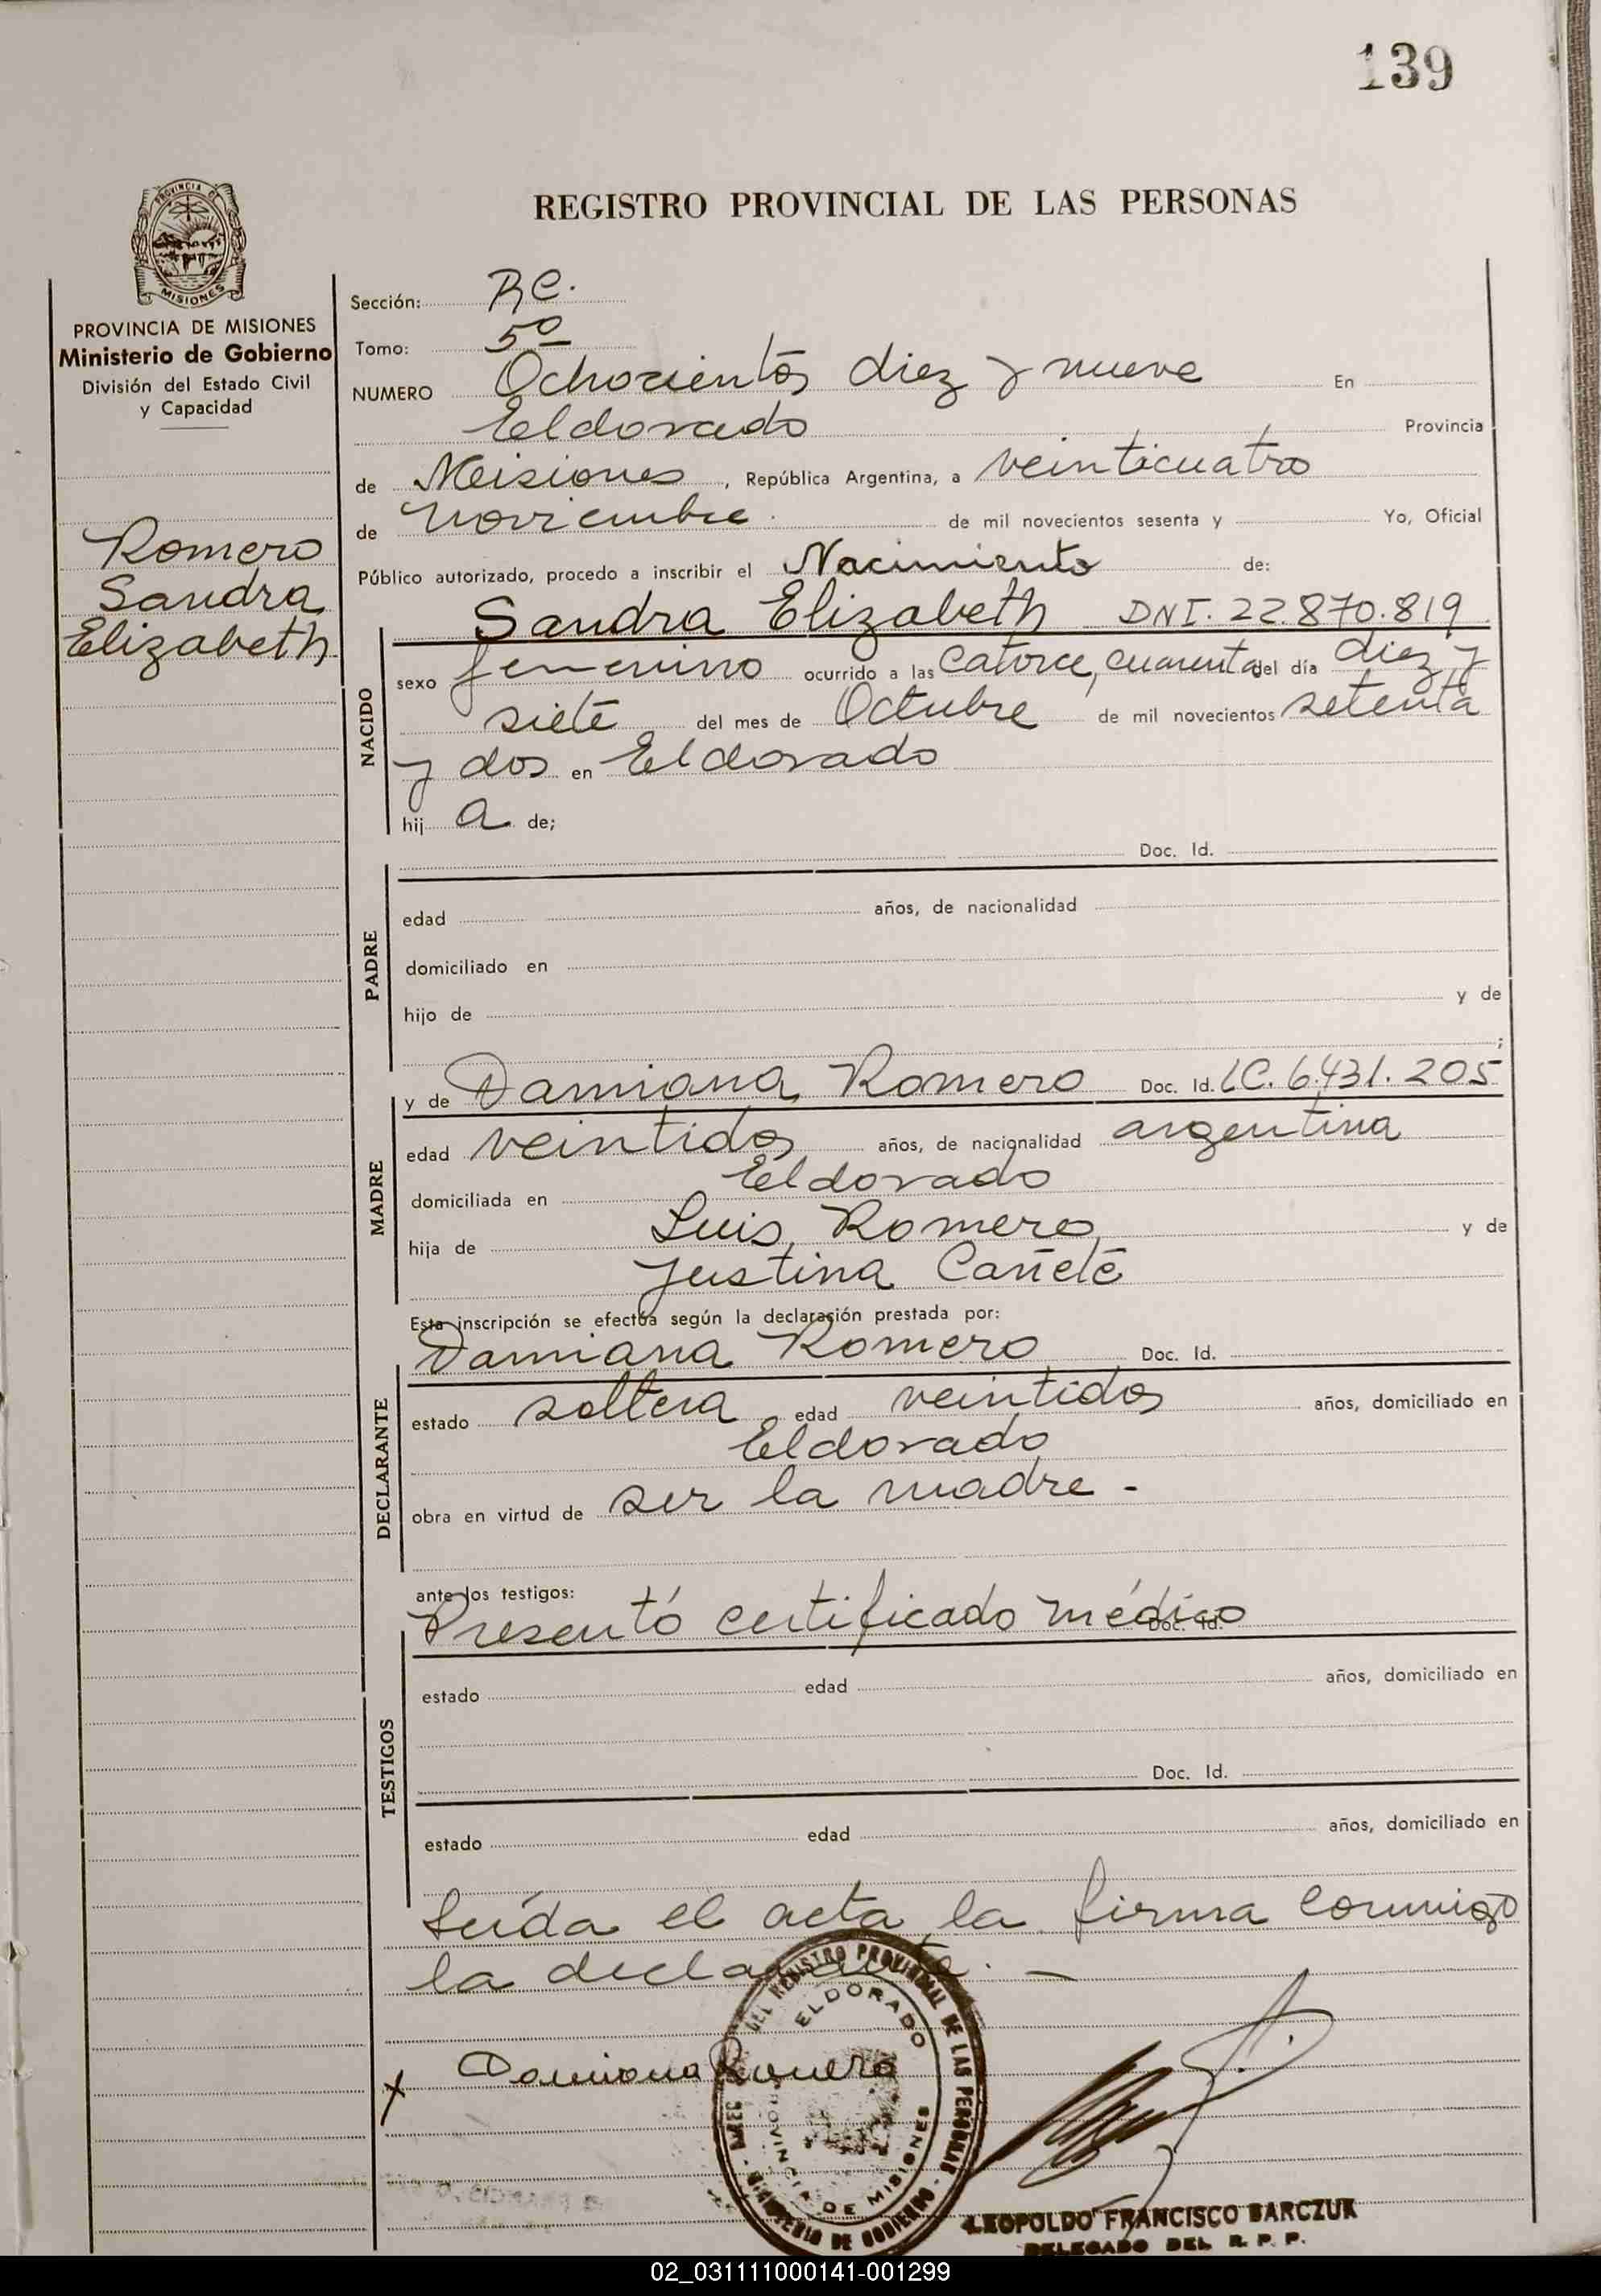 139
PROVINCIA DE
MISIONES
REGISTRO PROVINCIAL DE LAS PERSONAS
PROVINCIA DE MISIONES
Ministerio de Gobierno
División del Estado Civil
y Capacidad
Romero
Sandra
Elizabeth
Sección: RC.
Tomo: 5º
NUMERO Ochocientos diez y nueve En
Eldorado Provincia
de Misiones, República Argentina, a veinticuatro
de noviembre de mil novecientos sesenta y Yo, Oficial
Público autorizado, procedo a inscribir el Nacimiento de:
Sandra Elizabeth DNI. 22.870.819
NACIDO
sexo femenino ocurrido a las catorce, cuarenta del día diez y
siete del mes de Octubre de mil novecientos setenta
y dos en Eldorado
hija de;
Doc. Id.
PADRE
edad años, de nacionalidad
domiciliado en
hijo de y de
;
y de Damiana Romero Doc. Id. LC. 6.431.205
MADRE
edad veintidos años, de nacionalidad argentina
domiciliada en Eldorado
hija de Luis Romero y de
Justina Cañete
Esta inscripción se efectúa según la declaración prestada por:
Damiana Romero Doc. Id.
DECLARANTE
estado soltera edad veintidos años, domiciliado en
Eldorado
obra en virtud de ser la madre -
ante los testigos:
Presentó certificado médico Doc. Id.
TESTIGOS
estado edad años, domiciliado en
Doc. Id.
estado edad años, domiciliado en
Leída el acta la firma conmigo
la declarante. -
x Damiana Romero
DEL REGISTRO PROVINCIAL DE LAS PERSONAS
ELDORADO
PROVINCIA DE MISIONES
MINISTERIO DE GOBIERNO
LEOPOLDO FRANCISCO BARCZUK
DELEGADO DEL R. P. P.
02_031111000141-001299